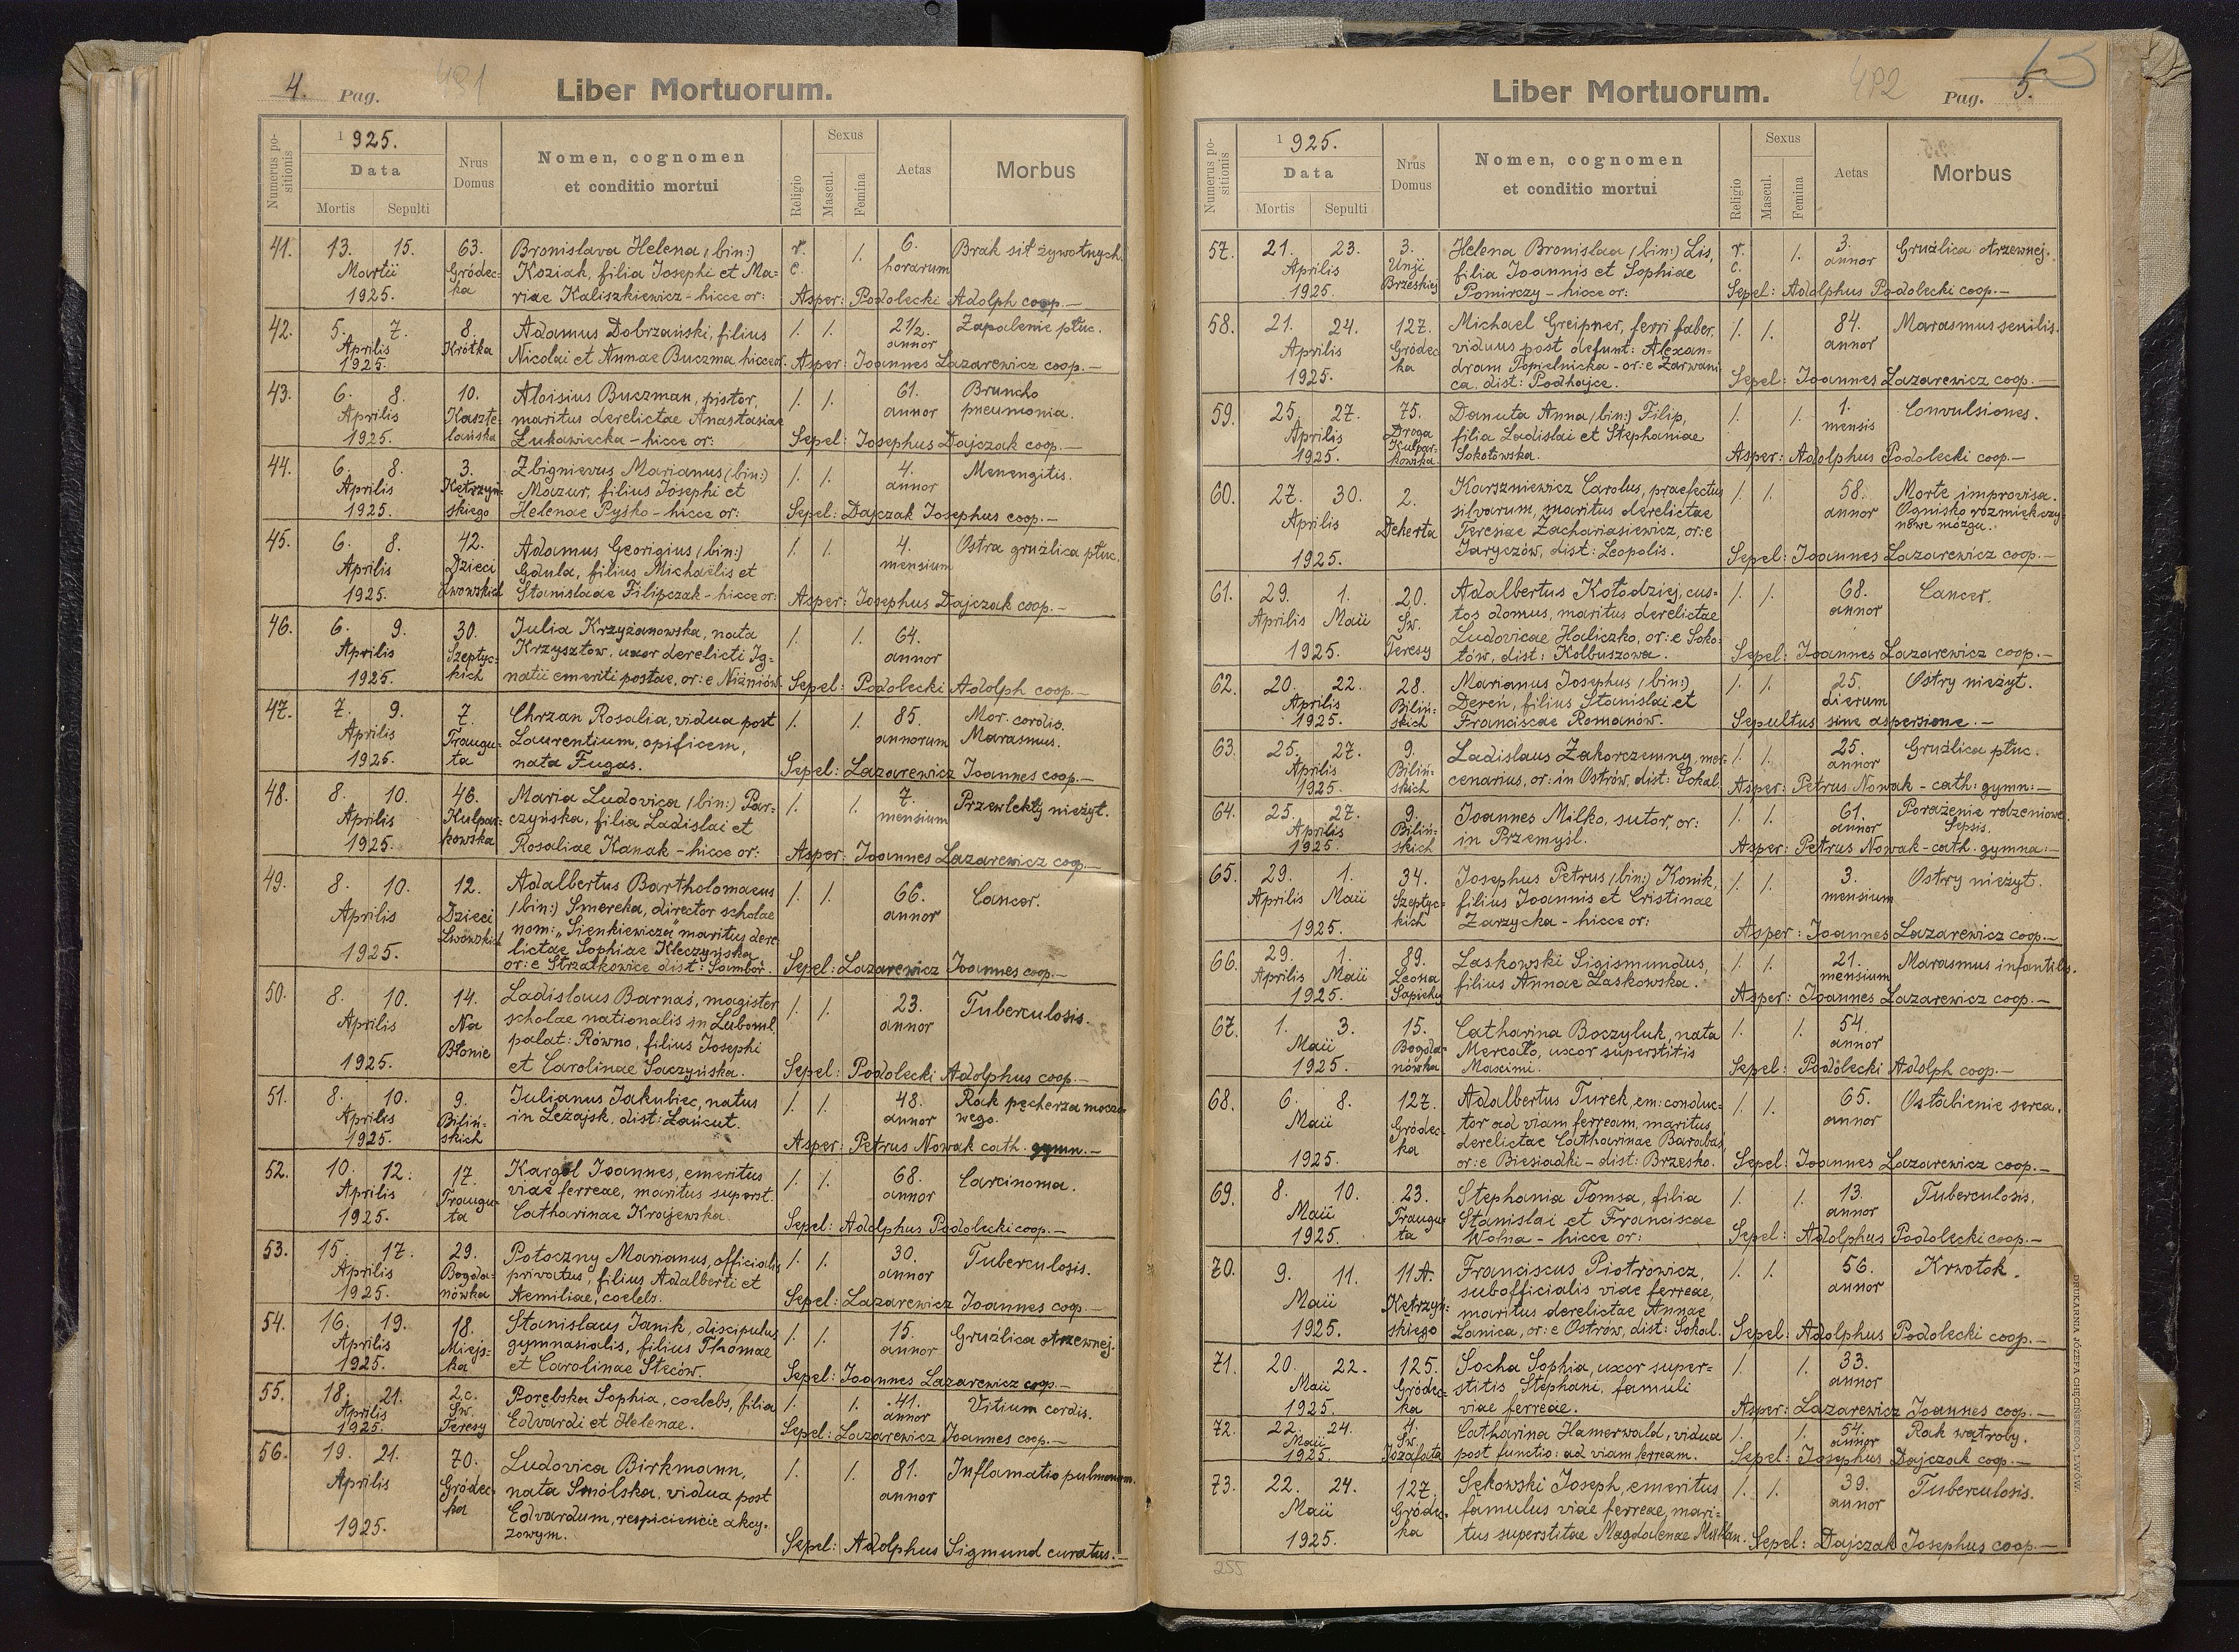 4. Pag. 491 Liber Mortuorum.
Numerus positionis
1925.
Data
Mortis Sepulti
Nrus Domus
Nomen, cognomen
et conditio mortui
Religio
Sexus
Mascul. Femina
Aetas
Morbus
41. 13. 15. 63. Bronislava Helena (bin:) r. 1. 6. Brak sił żywotnych.
Martii Gródec- Koziak, filia Josephi et Ma= c. horarum
1925. ka riae Kaliszkiewicz - hicce or: Asper: Podolecki Adolph coop. -
42. 5. 7. 8. Adamus Dobrzański, filius 1. 1. 2 1/2. Zapalenie płuc.
Aprilis Krótka annor
1925. Nicolai et Annae Buczma hicce or. Asper: Joannes Lazarewicz coop. -
43. 6. 8. 10. Aloisius Buczman, pistor, 1. 1. 61. Bruncho
Aprilis Kaszte- maritus derelictae Anastasiae annor pneumonia.
1925. lańska Łukawiecka - hicce or: Sepel: Josephus Dajczak coop. -
44. 6. 8. 3. Zbignievus Marianus (bin:) 1. 1. 4. Menengitis.
Aprilis Kętrzyń- Mazur, filius Josephi et annor
1925. skiego Helenae Pyśko - hicce or: Sepel: Dajczak Josephus coop. -
45. 6. 8. 42. Adamus Georigius (bin:) 1. 1. 4. Ostra gruźlica płuc.
Aprilis Dzieci Gdula, filius Michaëlis et mensium
1925. Lwowskich Stanisladae Filipczak - hicce or: Asper: Josephus Dajczak coop. -
46. 6. 9. 30. Julia Krzyżanowska, nata 1. 1. 64.
Aprilis Szeptyc- Krzysztow, uxor derelicti Ig= annor
1925. kich natii emeriti postae, or: e Niżniów. Sepel: Podolecki Adolph coop. -
47. 7. 9. 7. Chrzan Rosalia, vidua post 1. 1. 85. Mor. cordis.
Aprilis Traugu- Laurentium, opificem, annorum Marasmus.
1925. ta nata Fugas. Sepel: Lazarewicz Joannes coop. -
48. 8. 10. 46. Maria Ludovica (bin:) Par- 1. 1. 7. Przewlekły nieżyt.
Aprilis Kulpar- czyńska, filia Ladislai et mensium
1925. kowska Rosaliae Kanak - hicce or: Asper: Joannes Lazarewicz coop. -
49. 8. 10. 12. Adalbertus Bartholomaeus 1. 1. 66. Cancer.
Aprilis Dzieci (bin:) Smereka, director scholae annor
Lwowskich nom: "Sienkiewicza" maritus dere-
1925. lictae Sophiae Kleczyńska
or: e Strzałkowice dist: Sambor. Sepel: Lazarewicz Joannes coop. -
50. 8. 10. 14. Ladislaus Barnaś, magister 1. 1. 23. Tuberculosis.
Aprilis Na scholae nationalis in Luboml, annor
Błonie palat: Równo, filius Josephi
1925. et Carolinae Saczyńska. Sepel: Podolecki Adolphus coop. -
51. 8. 10. 9. Julianus Jakubiec, natus 1. 1. 48. Rak pęcherza moczo-
Aprilis Biliń- in Leżajsk, dist: Łańcut. annor wego.
1925. skich Asper: Petrus Nowak cath. gymn. -
52. 10. 12. 17. Kargol Joannes, emeritus 1. 1. 68. Carcinoma.
Aprilis Traugu- viae ferreae, maritus superst. annor
1925. ta Catharinae Krajewska. Sepel: Adolphus Podolecki coop. -
53. 15. 17. 29. Potoczny Marianus, officialis 1. 1. 30. Tuberculosis.
Aprilis Bogda- privatus, filius Adalberti et annor
1925. nówka Aemiliae, coelebs. Sepel: Lazarewicz Joannes coop. -
54. 16. 19. 18. Stanislaus Janik, discipulus 1. 1. 15. Gruźlica otrzewnej.
Aprilis Miejs- gymnasialis, filius Thomae annor
1925. ka et Carolinae Steców. Sepel: Joannes Lazarewicz coop. -
55. 18. 21. 2c. Porębska Sophia, coelebs, filia 1. 1. 41. Vitium cordis.
Aprilis Sw. Edvardi et Helenae. annor
1925. Teresy Sepel: Lazarewicz Joannes coop. -
56. 19. 21. 70. Ludovica Birkmann, 1. 1. 81. Inflamatio pulmonum.
Aprilis Gródec- nata Smólska, vidua post annor
ka Edvardum, respiciencie akcy-
1925. zowym. Sepel: Adolphus Sigmund curatus. -
Liber Mortuorum. 492 Pag. 5. 13
Numerus positionis
1925.
Data
Mortis Sepulti
Nrus Domus
Nomen, cognomen
et conditio mortui
Religio
Sexus
Mascul. Femina
Aetas
Morbus
57. 21. 23. 3. Helena Bronislaa (bin:) Lis, r. 1. 3. Gruźlica otrzewnej.
Aprilis Unji filia Joannis et Sophiae c. annor
1925. Brzeskiej Pomirczy - hicce or: Sepel: Adolphus Podolecki coop. -
58. 21. 24. 127. Michael Greipner, ferri faber, 1. 1. 84. Marasmus senilis.
Aprilis Gródec viduus post defunt: Alexan= annor
ka dram Popielnicka - or: e Zarwani
1925. ca, dist: Podhajce. Sepel: Joannes Lazarewicz coop. -
59. 25. 27. 75. Danuta Anna (bin:) Filip, 1. 1. 1. Convulsiones.
Aprilis Droga filia Ladislai et Stephaniae mensis
1925. Kulpar- kowska Sokołowska. Asper: Adolphus Podolecki coop. -
60. 27. 30. 2. Karszniewicz Carolus, praefectus 1. 1. 58. Morte improvisa.
Aprilis Dekerta silvarum, maritus derelictae annor Ognisko rozmiękczy-
Teresiae Zachariasiewicz, or: e nowe mózgu.
1925. Jaryczów, dist: Leopolis. Sepel: Joannes Lazarewicz coop. -
61. 29. 1. 20. Adalbertus Kołodziej, cus- 1. 1. 68. Cancer.
Aprilis Maii Sw. tos domus, maritus derelictae annor
Ludovicae Haliczko, or: e Soko-
1925. Teresy tów, dist: Kolbuszowa. Sepel: Joannes Lazarewicz coop. -
62. 20. 22. 28. Marianus Josephus (bin:) 1. 1. 25. Ostry nieżyt.
Aprilis Biliń- Dereń, filius Stanislai et dierum
1925. skich Franciscae Romanów. Sepultus sine aspersione. -
63. 25. 27. 9. Ladislaus Zakorczemny, mer- 1. 1. 25. Gruźlica płuc.
Aprilis Biliń- cenarius, or: in Ostrów, dist: Sokal. annor
1925. skich Asper: Petrus Nowak - cath: gymn: -
64. 25. 27. 9. Joannes Milko, sutor, or: 1. 1. 61. Porażenie rdzeniowe.
Aprilis Biliń- in Przemyśl. annor Sepsis.
1925. skich Asper: Petrus Nowak - cath. gymna: -
65. 29. 1. 34. Josephus Petrus (bin:) Konik, 1. 1. 3. Ostry nieżyt.
Aprilis Maii Szeptyc- filius Joannis et Cristinae mensium
1925. kich Zarzycka - hicce or: Asper: Joannes Lazarewicz coop. -
66. 29. 1. 89. Laskowski Sigismundus, 1. 1. 21. Marasmus infantilis.
Aprilis Maii Leona filius Annae Laskowska. mensium
1925. Sapiehy Asper: Joannes Lazarewicz coop. -
67. 1. 3. 15. Catharina Boczyluk, nata 1. 1. 54.
Maii Bogda- Mercało, uxor superstitis annor
1925. nówka Maximi. Sepel: Podolecki Adolph coop. -
68. 6. 8. 127. Adalbertus Turek, em: conduc- 1. 1. 65. Osłabienie serca.
Maii Gródec- tor ad viam ferream, maritus annor
ka derelictae Catharinae Barabas,
1925. or: e Biesiadki - dist: Brzesko. Sepel: Joannes Lazarewicz coop. -
69. 8. 10. 23. Stephania Tomsa, filia 1. 1. 13. Tuberculosis.
Maii Traugu- Stanislai et Franciscae annor
1925. ta Wolna - hicce or: Sepel: Adolphus Podolecki coop. -
70. 9. 11. 11A. Franciscus Piotrowicz, 1. 1. 56. Krwotok.
Maii Kętrzyń- subofficialis viae ferreae, annor
skiego maritus derelictae Annae
1925. Lanica, or: e Ostrów, dist: Sokal. Sepel: Adolphus Podolecki coop. -
71. 20. 22. 125. Socha Sophia, uxor super= 1. 1. 33.
Maii Gródec- stitis Stephani, famuli annor
1925. ka viae ferreae. Asper: Lazarewicz Joannes coop. -
72. 22. 24. 4. Catharina Hamerwald, vidua 1. 1. 54. Rak wątroby.
Maii Sw. post functio: ad viam ferream. annor
1925. Józafata Sepel: Josephus Dajczak coop. -
73. 22. 24. 127. Sękowski Joseph, emeritus 1. 1. 39. Tuberculosis.
Maii Gródec- famulus viae ferreae, mari= annor
1925. ka tus superstitae Magdalenae Sepel: Dajczak Josephus coop. -
255
DRUKARNIA JÓZEFA CHĘCIŃSKIEGO, LWÓW